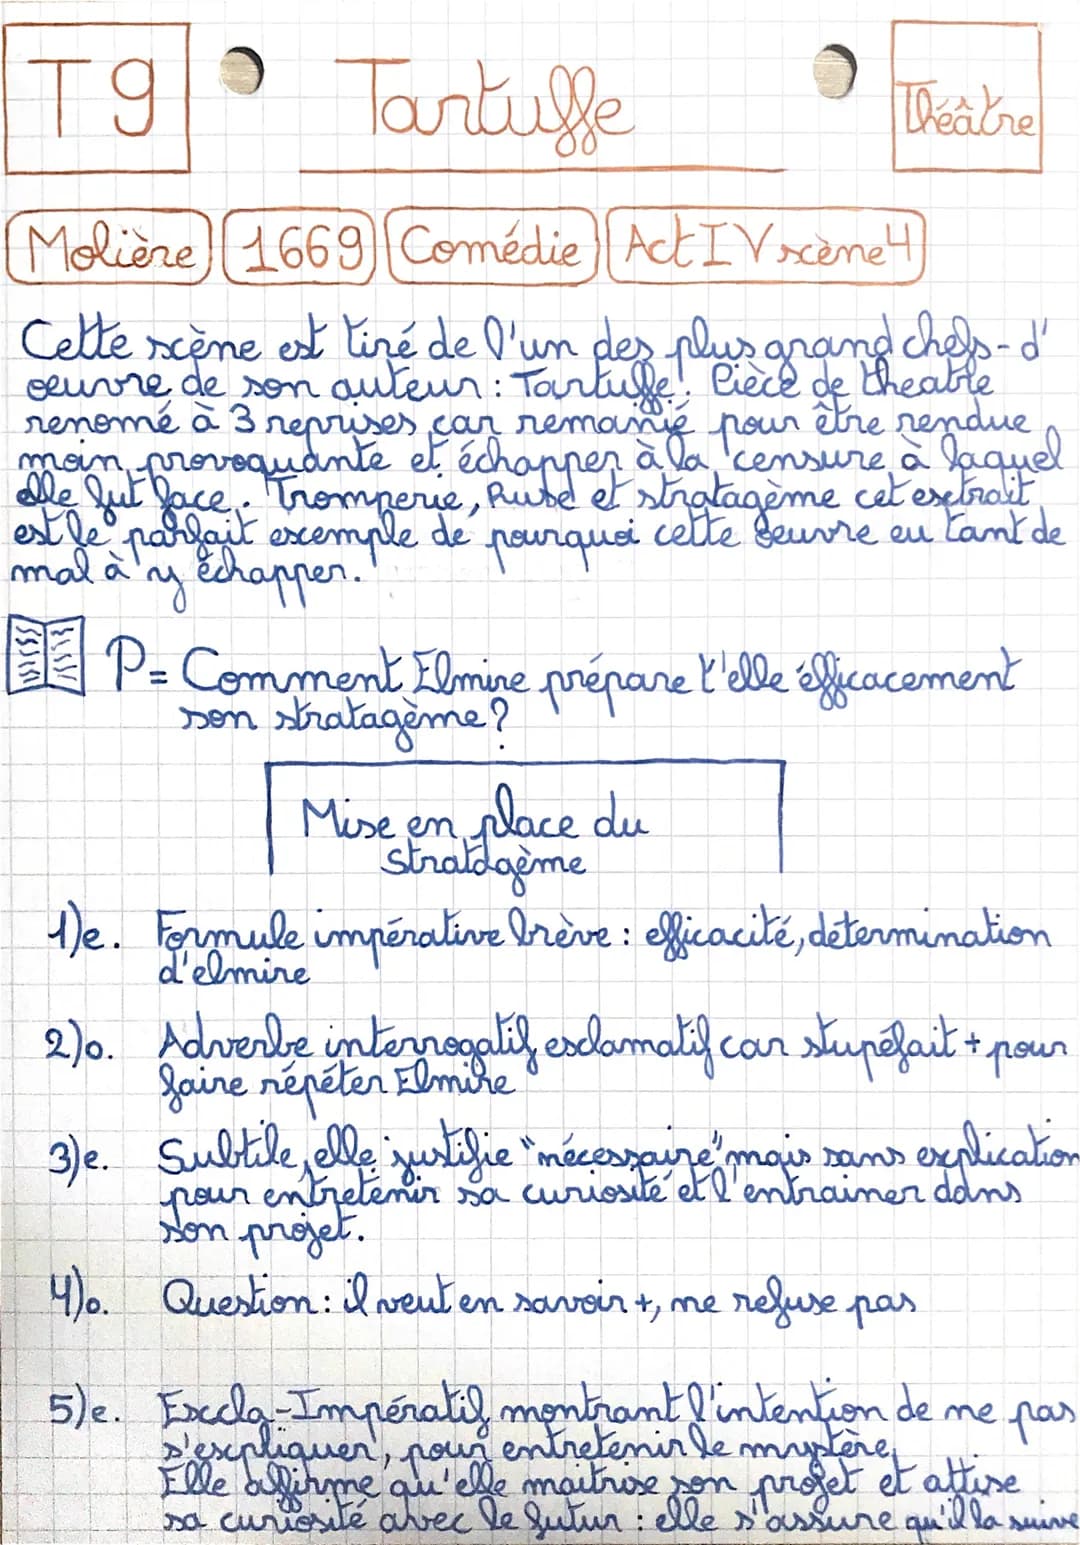 T9
Tartuffe
Théâtre
Molière 1669 Comédie Act IV scène 4
Cette scène est tiré de l'un des plus grand chefs-d'
oeuvre de son auteur : Tartuffe. Pièce de theatre
renomé à 3 reprises car remanié pour être rendue
moin provoquante et échapper à la censure à laquel
elle fut face. Tromperie, Ruse et stratagème cet extrait
est le parfait exemple de pourquoi cette oeuvre eu tant de
mal à y échapper.
P= Comment Elmire prépare t'elle éfficacement
son stratagème ?
Mise en place du
stratagème
1)e. Formule impérative brève : efficacité, détermination
d'elmire
2)o. Adverbe interrogatif exclamatif car stupéfait + pour
faire répéter Elmire
3)e. Subtile, elle justifie "nécessaire" mais sans explication
pour entretenir sa curiosité et l'entrainer dans
son projet.
4)o. Question : il veut en savoir +, ne refuse pas
5)e. Excla-Impératif montrant l'intention de ne pas
s'expliquer, pour entretenir le mystère,
Elle affirme qu'elle maitrise son projet et attise
sa curiosité avec le futur : elle s'assure qu'il la suive